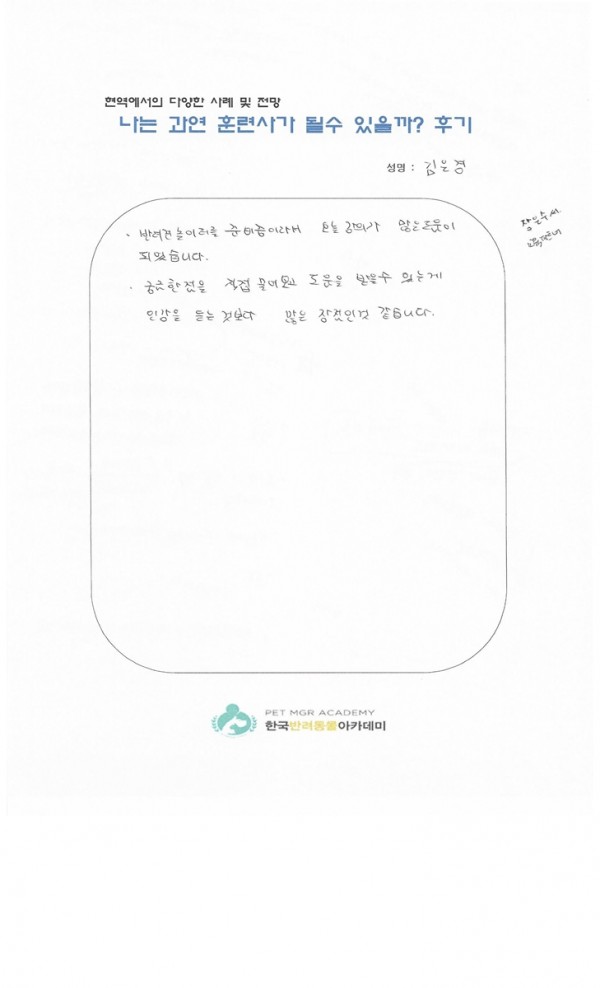 현역에서의 다양한 사례 및 전망
나는 과연 훈련사가 될수 있을까? 후기
성명 : 김은경
· 반려견놀이터를 준비중이라서 오늘 강의가 많은도움이
되었습니다.
· 궁금한점을 직접 물어보고 도움을 받을수 있는게
인강을 듣는 것보다 많은 장점인것 같습니다.
PET MGR ACADEMY
한국반려동물아카데미